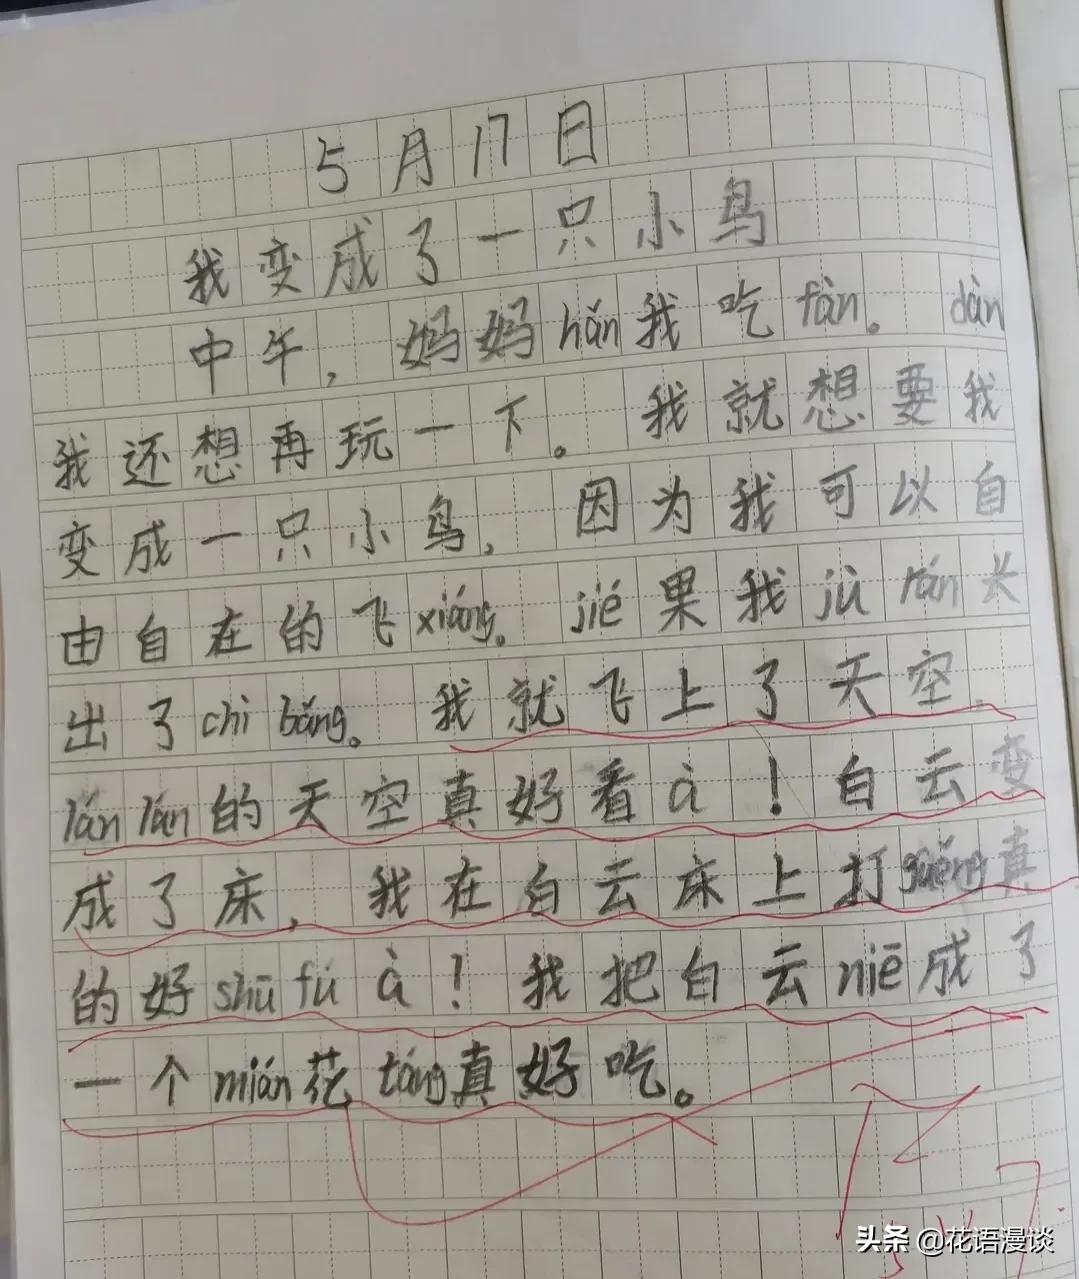 5月17日
我变成了一只小鸟
中午，妈妈hǎn我吃fàn。dàn
我还想再玩一下。我就想要我
变成一只小鸟，因为我可以自
由自在的飞xiáng。jié果我jū rán长
出了chì bǎng。我就飞上了天空，
lán lán的天空真好看à！白云变
成了床，我在白云床上打gǔng真
的好shū fú à！我把白云niē成了
一个mián花táng真好吃。
头条 @花语漫谈